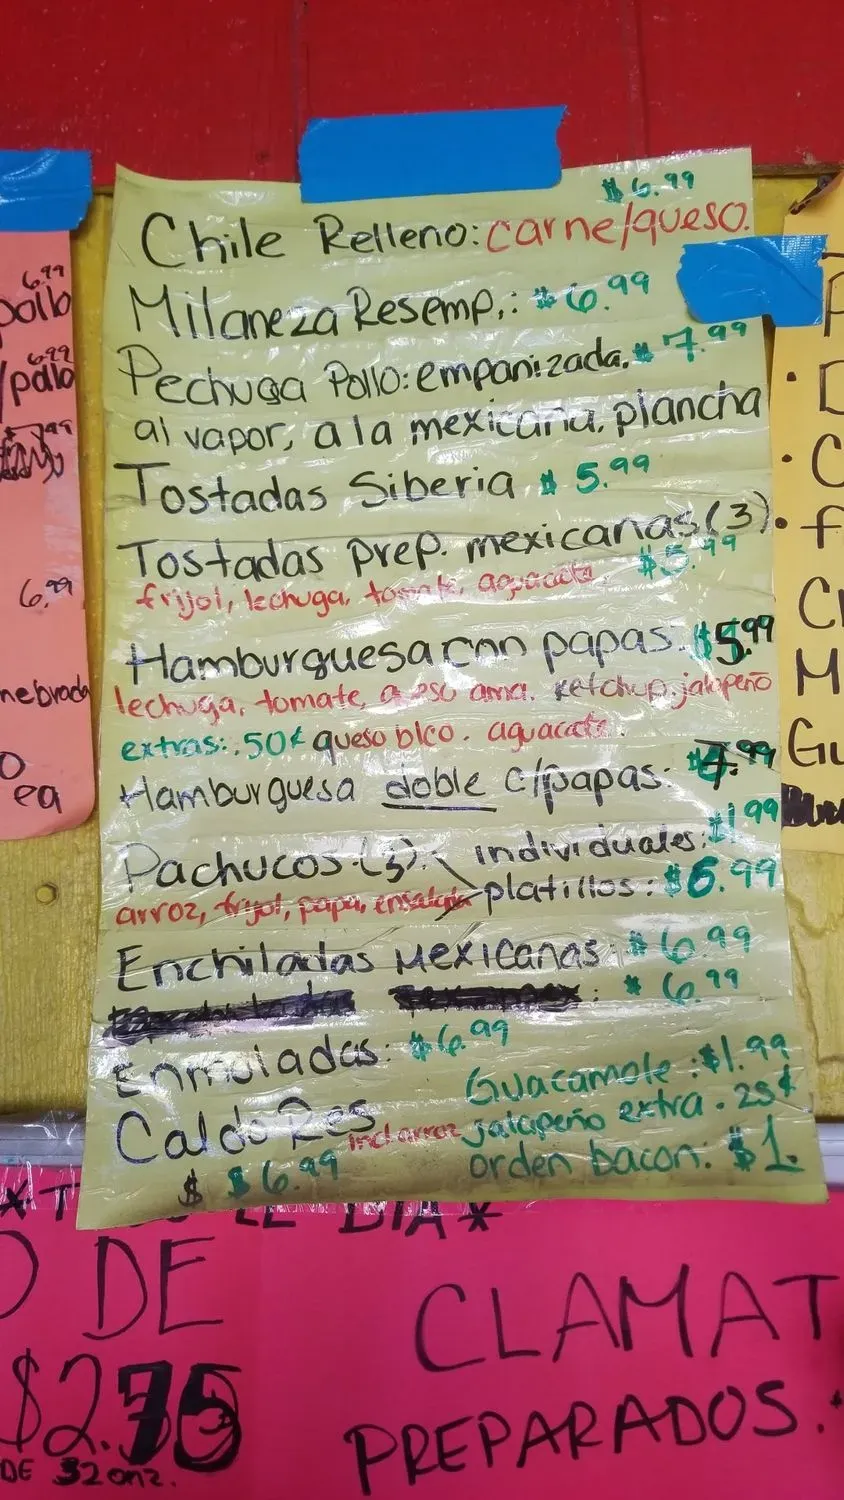 $6.99
Chile Relleno: carne/queso.
Milaneza Res emp.: $6.99
Pechuga Pollo: empanizada, $7.99
al vapor, a la mexicana, plancha
Tostadas Siberia $ 5.99
Tostadas prep. mexicanas (3)
frijol, lechuga, tomate, aguacate. $5.99
Hamburguesa con papas: $5.99
lechuga, tomate, ama. ketchup, jalapeño
extras: .50¢ queso blco. aguacate.
Hamburguesa doble c/papas: $7.99
Pachucos (3). individuales: $1.99
arroz, frijol, papa, platillos: $6.99
Enchiladas Mexicanas: $6.99
: $ 6.99
Enmoladas: $6.99
Guacamole: $1.99
Caldo Res incl arroz jalapeño extra. 25¢
$ $6.99 orden bacon: $1.
6.99
pollo
6.99
/pollo
7.99
6.99
ea
Gu
LE DIA*
DE
$2.75
DE 32 onz.
CLAMAT
PREPARADOS.